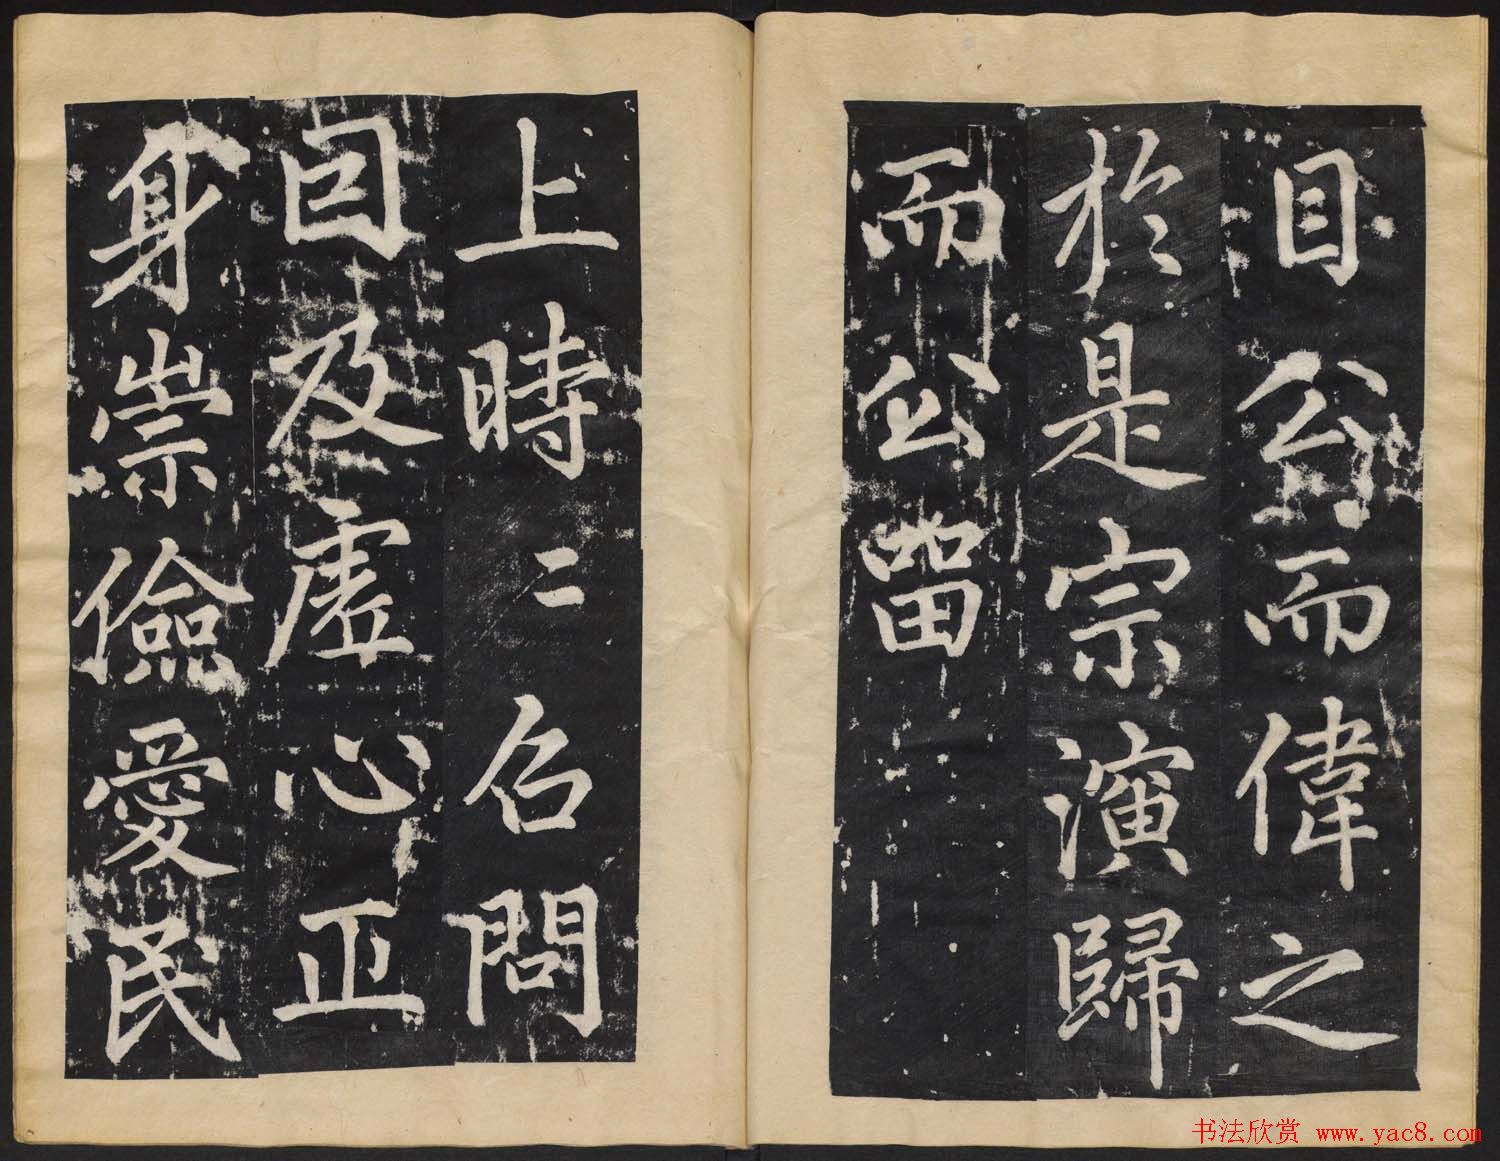 目公而偉之
扵是宗演歸
而公畱
上時〻召問
囙及虛心正
身崇儉愛民
书法欣赏 www.yac8.com